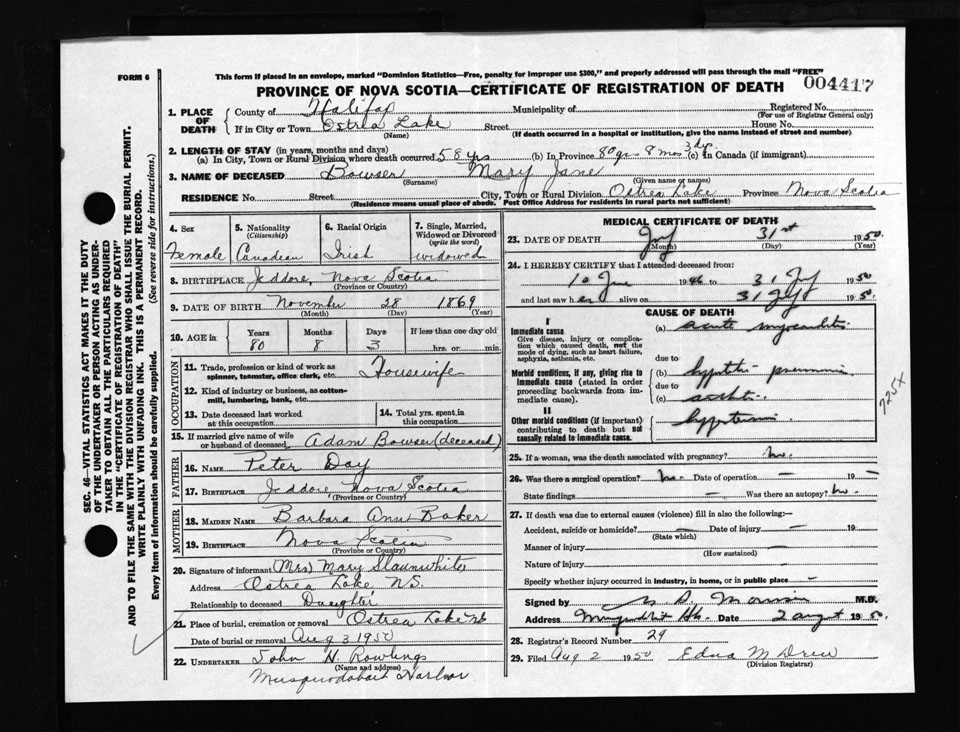 FORM 6
This form if placed in an envelope, marked "Dominion Statistics—Free, penalty for improper use $300," and properly addressed will pass through the mail "FREE"
PROVINCE OF NOVA SCOTIA—CERTIFICATE OF REGISTRATION OF DEATH
004417
SEC. 46—VITAL STATISTICS ACT MAKES IT THE DUTY
OF THE UNDERTAKER OR PERSON ACTING AS UNDER-
TAKER TO OBTAIN ALL THE PARTICULARS REQUIRED
IN THE "CERTIFICATE OF REGISTRATION OF DEATH"
AND TO FILE THE SAME WITH THE DIVISION REGISTRAR WHO SHALL ISSUE THE BURIAL PERMIT.
WRITE PLAINLY WITH UNFADING INK. THIS IS A PERMANENT RECORD.
Every item of information should be carefully supplied. (See reverse side for instructions.)
1. PLACE OF DEATH
County of Halifax Municipality of Registered No.
(For use of Registrar General only)
If in City or Town Ostrea Lake Street House No.
(Name) (If death occurred in a hospital or institution, give the name instead of street and number)
2. LENGTH OF STAY (in years, months and days)
(a) In City, Town or Rural Division where death occurred 58 yrs (b) In Province 80 yrs 8 mos 3 dys (c) In Canada (if immigrant)
3. NAME OF DECEASED Bowser Mary Jane
(Surname) (Given name or names)
RESIDENCE No. Street City, Town or Rural Division Ostrea Lake Province Nova Scotia
(Residence means usual place of abode. Post Office Address for residents in rural parts not sufficient)
4. Sex
Female
5. Nationality
(Citizenship)
Canadian
6. Racial Origin
Irish
7. Single, Married,
Widowed or Divorced
(write the word)
widowed
8. BIRTHPLACE Jeddore, Nova Scotia
(Province or Country)
9. DATE OF BIRTH November 28 1869
(Month) (Day) (Year)
10. AGE in
Years 80
Months 8
Days 3
If less than one day old
hrs. or min.
OCCUPATION
11. Trade, profession or kind of work as
spinner, teamster, office clerk, etc. Housewife
12. Kind of industry or business, as cotton-
mill, lumbering, bank, etc.
13. Date deceased last worked
at this occupation
14. Total yrs. spent in
this occupation
15. If married give name of wife
or husband of deceased Adam Bowser (deceased)
FATHER
16. NAME Peter Day
17. BIRTHPLACE Jeddore, Nova Scotia
(Province or Country)
MOTHER
18. MAIDEN NAME Barbara Ann Baker
19. BIRTHPLACE Nova Scotia
(Province or Country)
20. Signature of informant (Mrs) Mary Slaunwhite
Address Ostrea Lake NS.
Relationship to deceased Daughter
21. Place of burial, cremation or removal Ostrea Lake NS
Date of burial or removal Aug 3 1950
22. UNDERTAKER John N. Rowlings
(Name and address)
Musquodoboit Harbor
MEDICAL CERTIFICATE OF DEATH
23. DATE OF DEATH July 31st 1950
(Month) (Day) (Year)
24. I HEREBY CERTIFY that I attended deceased from:
10 June 1946 to 31 July 1950
and last saw her alive on 31 July 1950
CAUSE OF DEATH
I
Immediate cause
Give disease, injury or complica-
tion which caused death, not the
mode of dying, such as heart failure,
asphyxia, asthenia, etc.
(a) acute myocarditis
due to
Morbid conditions, if any, giving rise to
immediate cause (stated in order
proceeding backwards from im-
mediate cause).
(b) pneumonia
due to
(c)
II
Other morbid conditions (if important)
contributing to death but not
causally related to immediate cause.
hypertension
725X
25. If a woman, was the death associated with pregnancy? no.
26. Was there a surgical operation? no. Date of operation — 19 —
State findings — Was there an autopsy? no.
27. If death was due to external causes (violence) fill in also the following:—
Accident, suicide or homicide? — Date of injury — 19
(State which)
Manner of injury —
(How sustained)
Nature of injury —
Specify whether injury occurred in industry, in home, or in public place —
Signed by M.D.
Address Date 2 August 1950.
28. Registrar's Record Number 29
29. Filed Aug 2 1950 Edna M Drew
(Division Registrar)